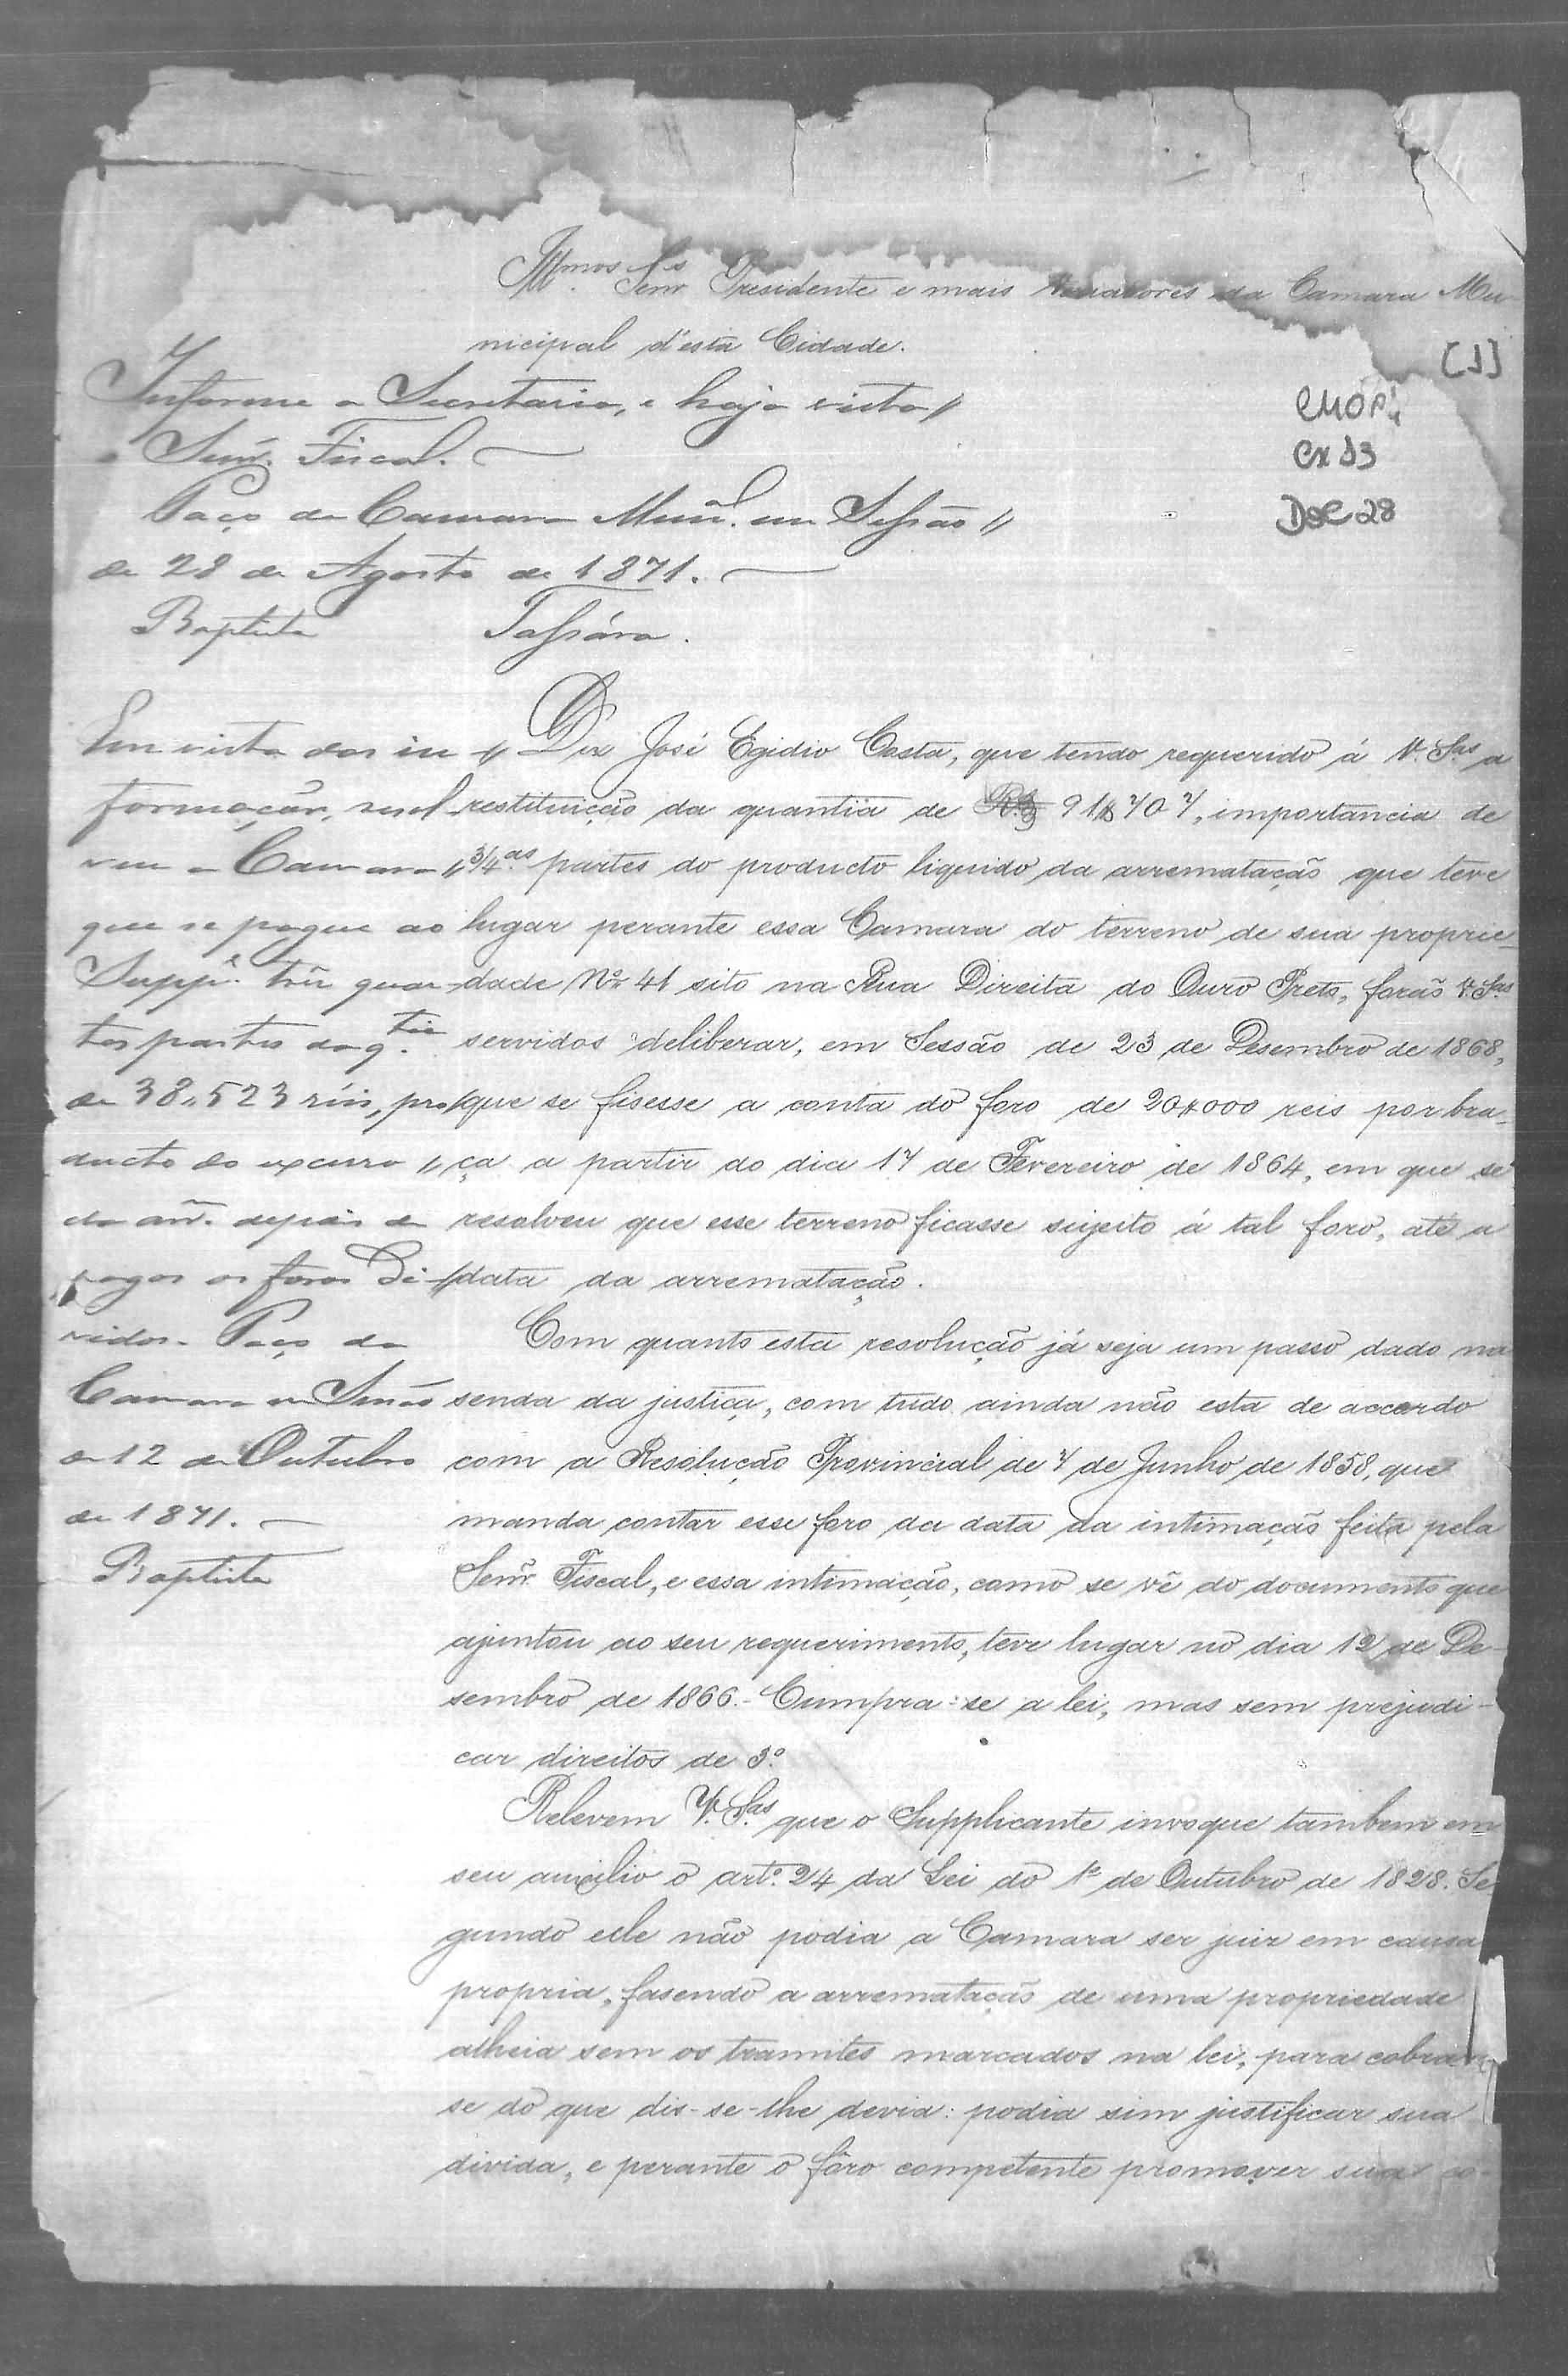 Illmos Senrs Presidente e mais Vereadores da Camara Mu-
nicipal d'esta Cidade.
[1]
CMOP
Cx 13
Doc 28
Informe o Secretario, e haja vista o
Senr. Fiscal.
Paço da Camara Mun. em Sessão
de 28 de Agosto de 1871.
Baptista Tassára.
Diz José Egidio Costa, que tendo requerido á V. Sas a
restituicção da quantia de 91$707, importancia de
3/4as partes do producto liquido da arrematação que teve
lugar perante essa Camara do terreno de sua proprie-
dade No 41 sito na Rua Direita do Ouro Preto, forão V. Sas
servidos deliberar, em Sessão de 23 de Desembro de 1868,
que se fisesse a conta do foro de 20$000 reis por bra-
ça a partir do dia 17 de Fevereiro de 1864, em que se
resolveu que esse terreno ficasse sujeito á tal foro, até a
data da arrematação.
Com quanto esta resolução já seja um passo dado na
senda da justiça, com tudo ainda não esta de accordo
com a Resolução Provincial de 7 de Junho de 1858, que
manda contar esse foro da data da intimação feita pela
Senr Fiscal, e essa intimação, como se vê do documento que
ajuntou ao seu requerimento, teve lugar no dia 12 de De-
sembro de 1866.- Cumpra-se a lei, mas sem prejudi-
car direitos de 3o.
Relevem V. Sas que o Supplicante invoque tambem em
seu auxilio o arto. 24 da Lei do 1o de Outubro de 1828. Se-
gundo elle não podia a Camara ser juiz em causa
propria, fasendo a arrematação de uma propriedade
alheia sem os tramites marcados na lei, para cobrar
se do que dis-se-lhe devia: podia sim justificar sua
divida, e perante o fôro competente promover sua co-
Em vista das in-
formações, resol-
veu a Camara
que se pague ao
Suppe. tres quar-
tas partes da q.tia
de 38.523 réis, pro-
ducto do excesso
da arr. depois de
pagos os foros de-
vidos. Paço da
Camara em Sessão
de 12 de Outubro
de 1871.
Baptista